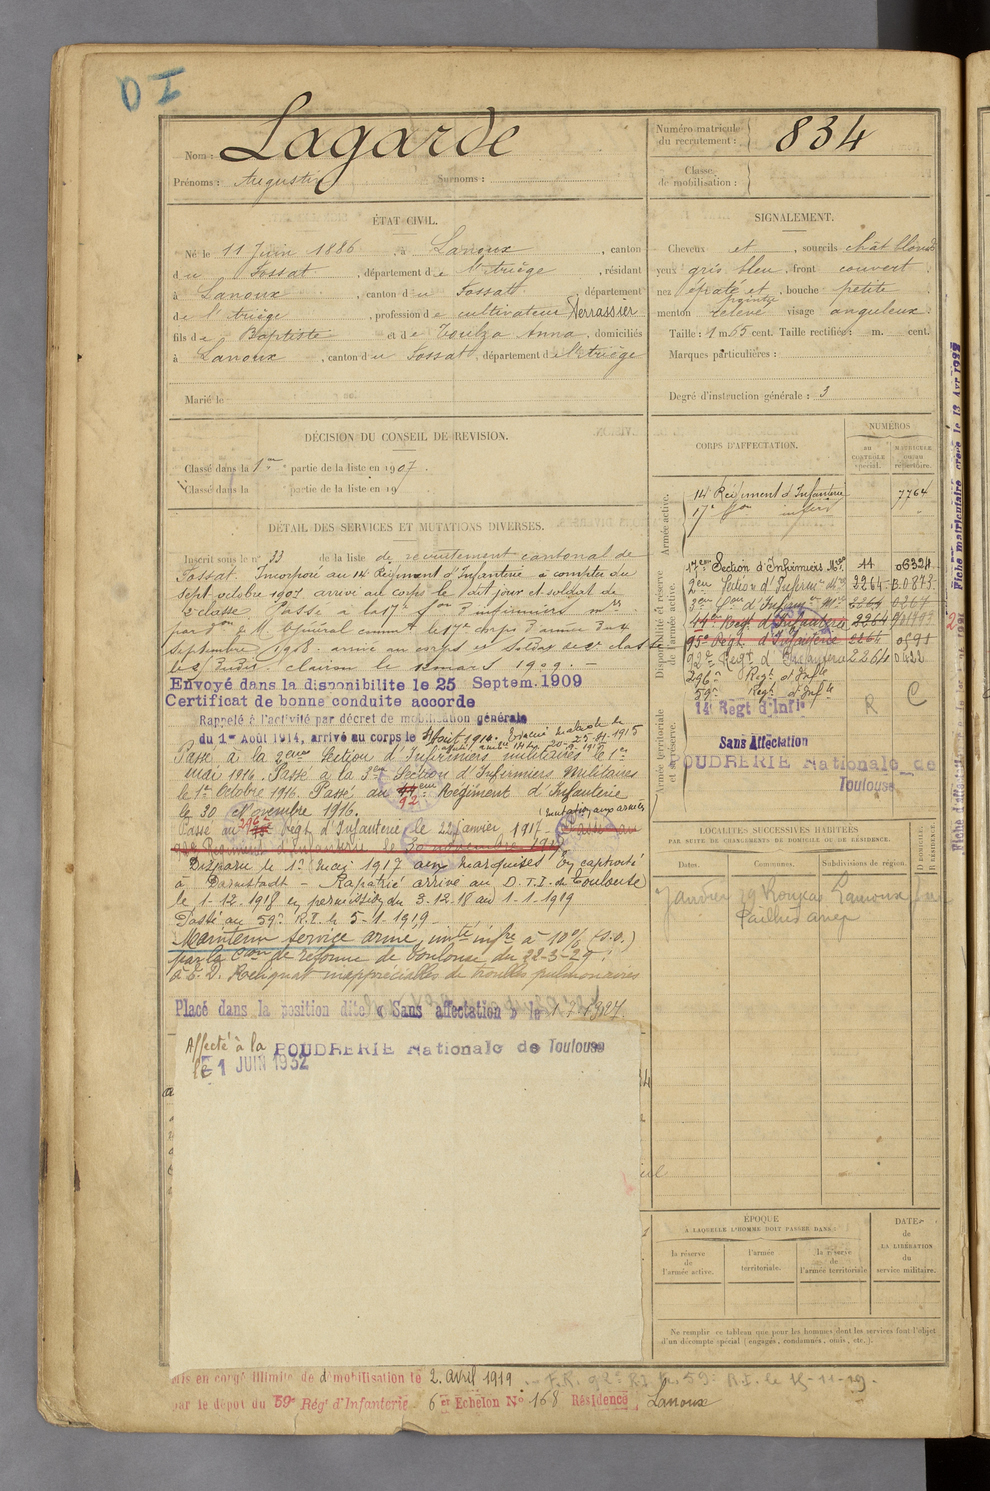 D I
Nom : Lagarde
Prénoms : Augustin Surnoms :
Numéro matricule du recrutement : 834
Classe de mobilisation :
ÉTAT CIVIL.
Né le 11 Juin 1886, à Lanoux, canton
du Fossat, département de l'Ariège, résidant
à Lanoux, canton du Fossat, département
de l'Ariège, profession de cultivateur Terrassier
fils de Baptiste et de Toulza Anna, domiciliés
à Lanoux, canton du Fossat, département de l'Ariège
Marié le
SIGNALEMENT.
Cheveux et, sourcils chât blond
yeux gris bleu, front couvert
nez épaté et pointu, bouche petite
menton relevé visage anguleux
Taille : 1 m. 55 cent. Taille rectifiée : m. cent.
Marques particulières :
Degré d'instruction générale : 3
DÉCISION DU CONSEIL DE REVISION.
Classé dans la 1re partie de la liste en 1907.
Classé dans la partie de la liste en 19
DÉTAIL DES SERVICES ET MUTATIONS DIVERSES.
Inscrit sous le n° 33 de la liste de recrutement cantonal de
Fossat. Incorporé au 14e Régiment d'Infanterie à compter du
Sept octobre 1907 arrivé au corps le dit jour et soldat de
2e classe. Passé à la 17e Son d'infirmiers mres
par de M. Général commt le 17e corps d'armée du 4
Septembre 1908. arrivé au corps et soldat de 2e classe
les dudit. clairon le 10 mars 1909. —
Envoyé dans la disponibilite le 25 Septem. 1909
Certificat de bonne conduite accorde
Rappelé à l'activité par décret de mobilisation générale
du 1er Août 1914, arrivé au corps le 4 Août 1914.
Passé à la 2eme Section d'Infirmiers militaires le 1er
mai 1916. Passé à la 3eme Section d'Infirmiers Militaires
le 1er Octobre 1916. Passé au 92 eme Régiment d'Infanterie
le 30 Novembre 1916.
Passé au 296e Régt d'Infanterie le 22 janvier 1917 (mutation aux armées)
Passé au
92e Régiment d'Infanterie le 30 novembre 1916
Disparu le 1er mai 1917 aux Marquises En captivité
à Darmstadt — Rapatrié arrivé au D.T.I. de Toulouse
le 1-12-1918 en permission du 3-12-18 au 1-1-1919
Passé au 59e R.I. le 5-1-1919 —
Maintenu service armé, invte infre à 10% (S.O.)
par la Con de réforme de Toulouse du 22-3-27 :
à E.D. Reliquat inappréciables de troubles pulmonaires
Placé dans la position dite « Sans affectation » le 1-7-1927.
Affecté à la POUDRERIE Nationale de Toulouse
le 1 JUIN 1932
CORPS D'AFFECTATION.
NUMÉROS
au CONTROLE spécial.
MATRICULE ou au répertoire.
Armée active.
14e Régiment d'Infanterie 7764
17e Son infirs
Disponibilité et réserve de l'armée active.
17eme Section d'Infirmiers Mres 11 06324
2eme Section d'Infirmiers Mres 2264 B.0873
3eme Son d'Infirmiers Mres 2264
44eme Régt d'Infanterie 2264
95e Régt d'Infanterie 2264 0891
92e Régt d'Infanterie 2264 0422
296e Régt d'Infie
59e Régt d'Infie
Armée territoriale et sa réserve.
14 Régt d'Infie R C
Sans Affectation
POUDRERIE Nationale de
Toulouse
LOCALITÉS SUCCESSIVES HABITÉES
PAR SUITE DE CHANGEMENTS DE DOMICILE OU DE RÉSIDENCE.
Dates. Communes. Subdivisions de région. D DOMICILE. R RÉSIDENCE.
ÉPOQUE
À LAQUELLE L'HOMME DOIT PASSER DANS :
la réserve de l'armée active.
l'armée territoriale.
la réserve de l'armée territoriale
DATE de LA LIBÉRATION du service militaire.
Ne remplir ce tableau que pour les hommes dont les services font l'objet
d'un décompte spécial (engagés, condamnés, omis, etc.).
Mis en congé illimité de démobilisation le 2 avril 1919 F.R. 92e R.I. 59e R.I. le 15-11-29.
par le dépôt du 59e Rég d'Infanterie 6e Echelon No 168 Résidence Lanoux
Fiche matriculaire créée le 13 Avr 1932